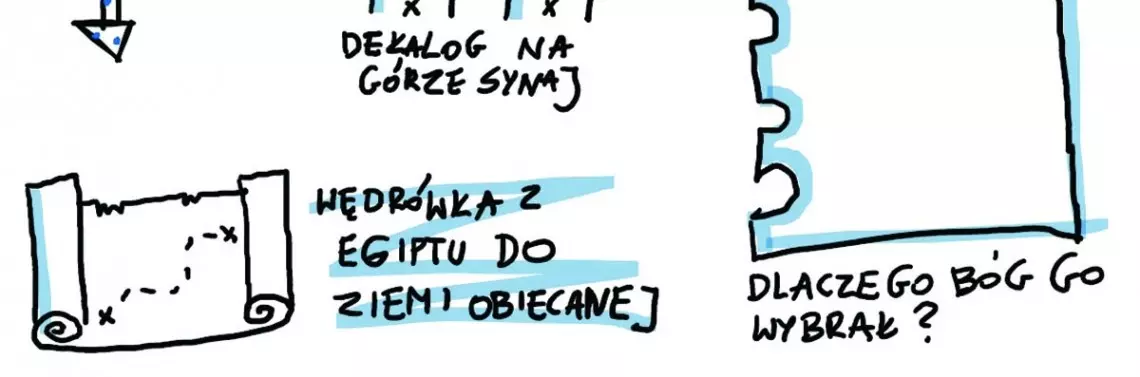 DEKALOG NA
GÓRZE SYNAJ
WĘDRÓWKA Z
EGIPTU DO
ZIEMI OBIECANEJ
DLACZEGO BÓG GO
WYBRAŁ?